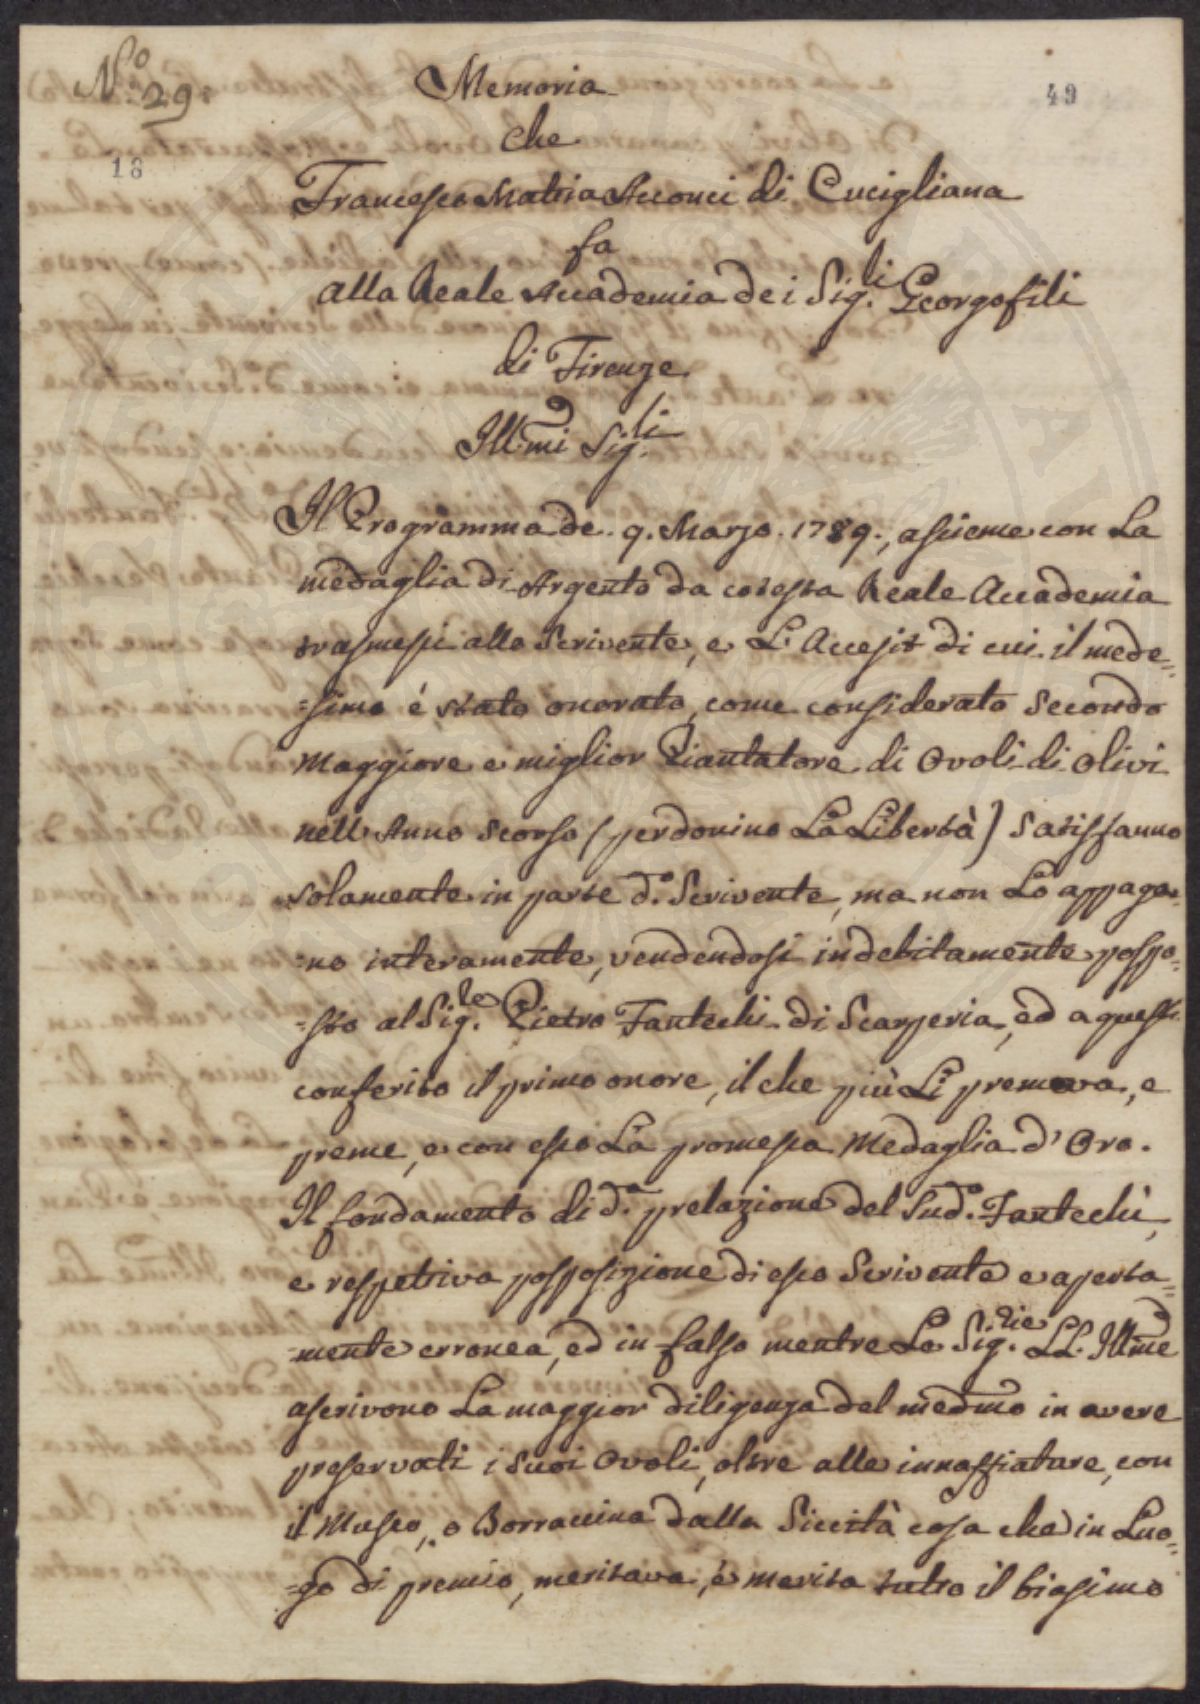 No. 29.
49
18
Memoria
che
Francesco Maria Acconci di Cucigliana
fa
alla Reale Accademia dei Sig.li Georgofili
di Firenze
Ill.mi Sig.li
Il Programma de. 9. Marzo. 1789., assieme con La
medaglia di Argento da cotesta Reale Accademia
trasmessi allo Scrivente, e L'Accesit di cui il mede=
=simo é stato onorato, come considerato Secondo
Maggiore e miglior Piantatore di Ovoli di Olivi
nell Anno Scorso (perdonino La Libertà) Satisfanno
solamente in parte d.o Scrivente, ma non Lo appaga=
=no interamente, vendendosi indebitamente pospo=
=sto al Sig.re Pietro Fantechi di Scarperia, ed a questi
conferito il primo onore, il che più Li premeva, e
preme, e con esso La promessa Medaglia d'Oro.
Il fondamento di d.a prelazione del Sud.o Fantechi,
e respetiva posposizione di esso Scrivente e aperta=
=mente erronea, ed in falso mentre Le Sig.rie LL. Ill.me
ascrivono La maggior diligenza del med.mo in avere
preservati i Suoi Ovoli, oltre alle innaffiature, con
il Musco, o Borraccina dalla Siccità cosa che in Luo=
=go di premio, meritava, e merita tutto il biasimo